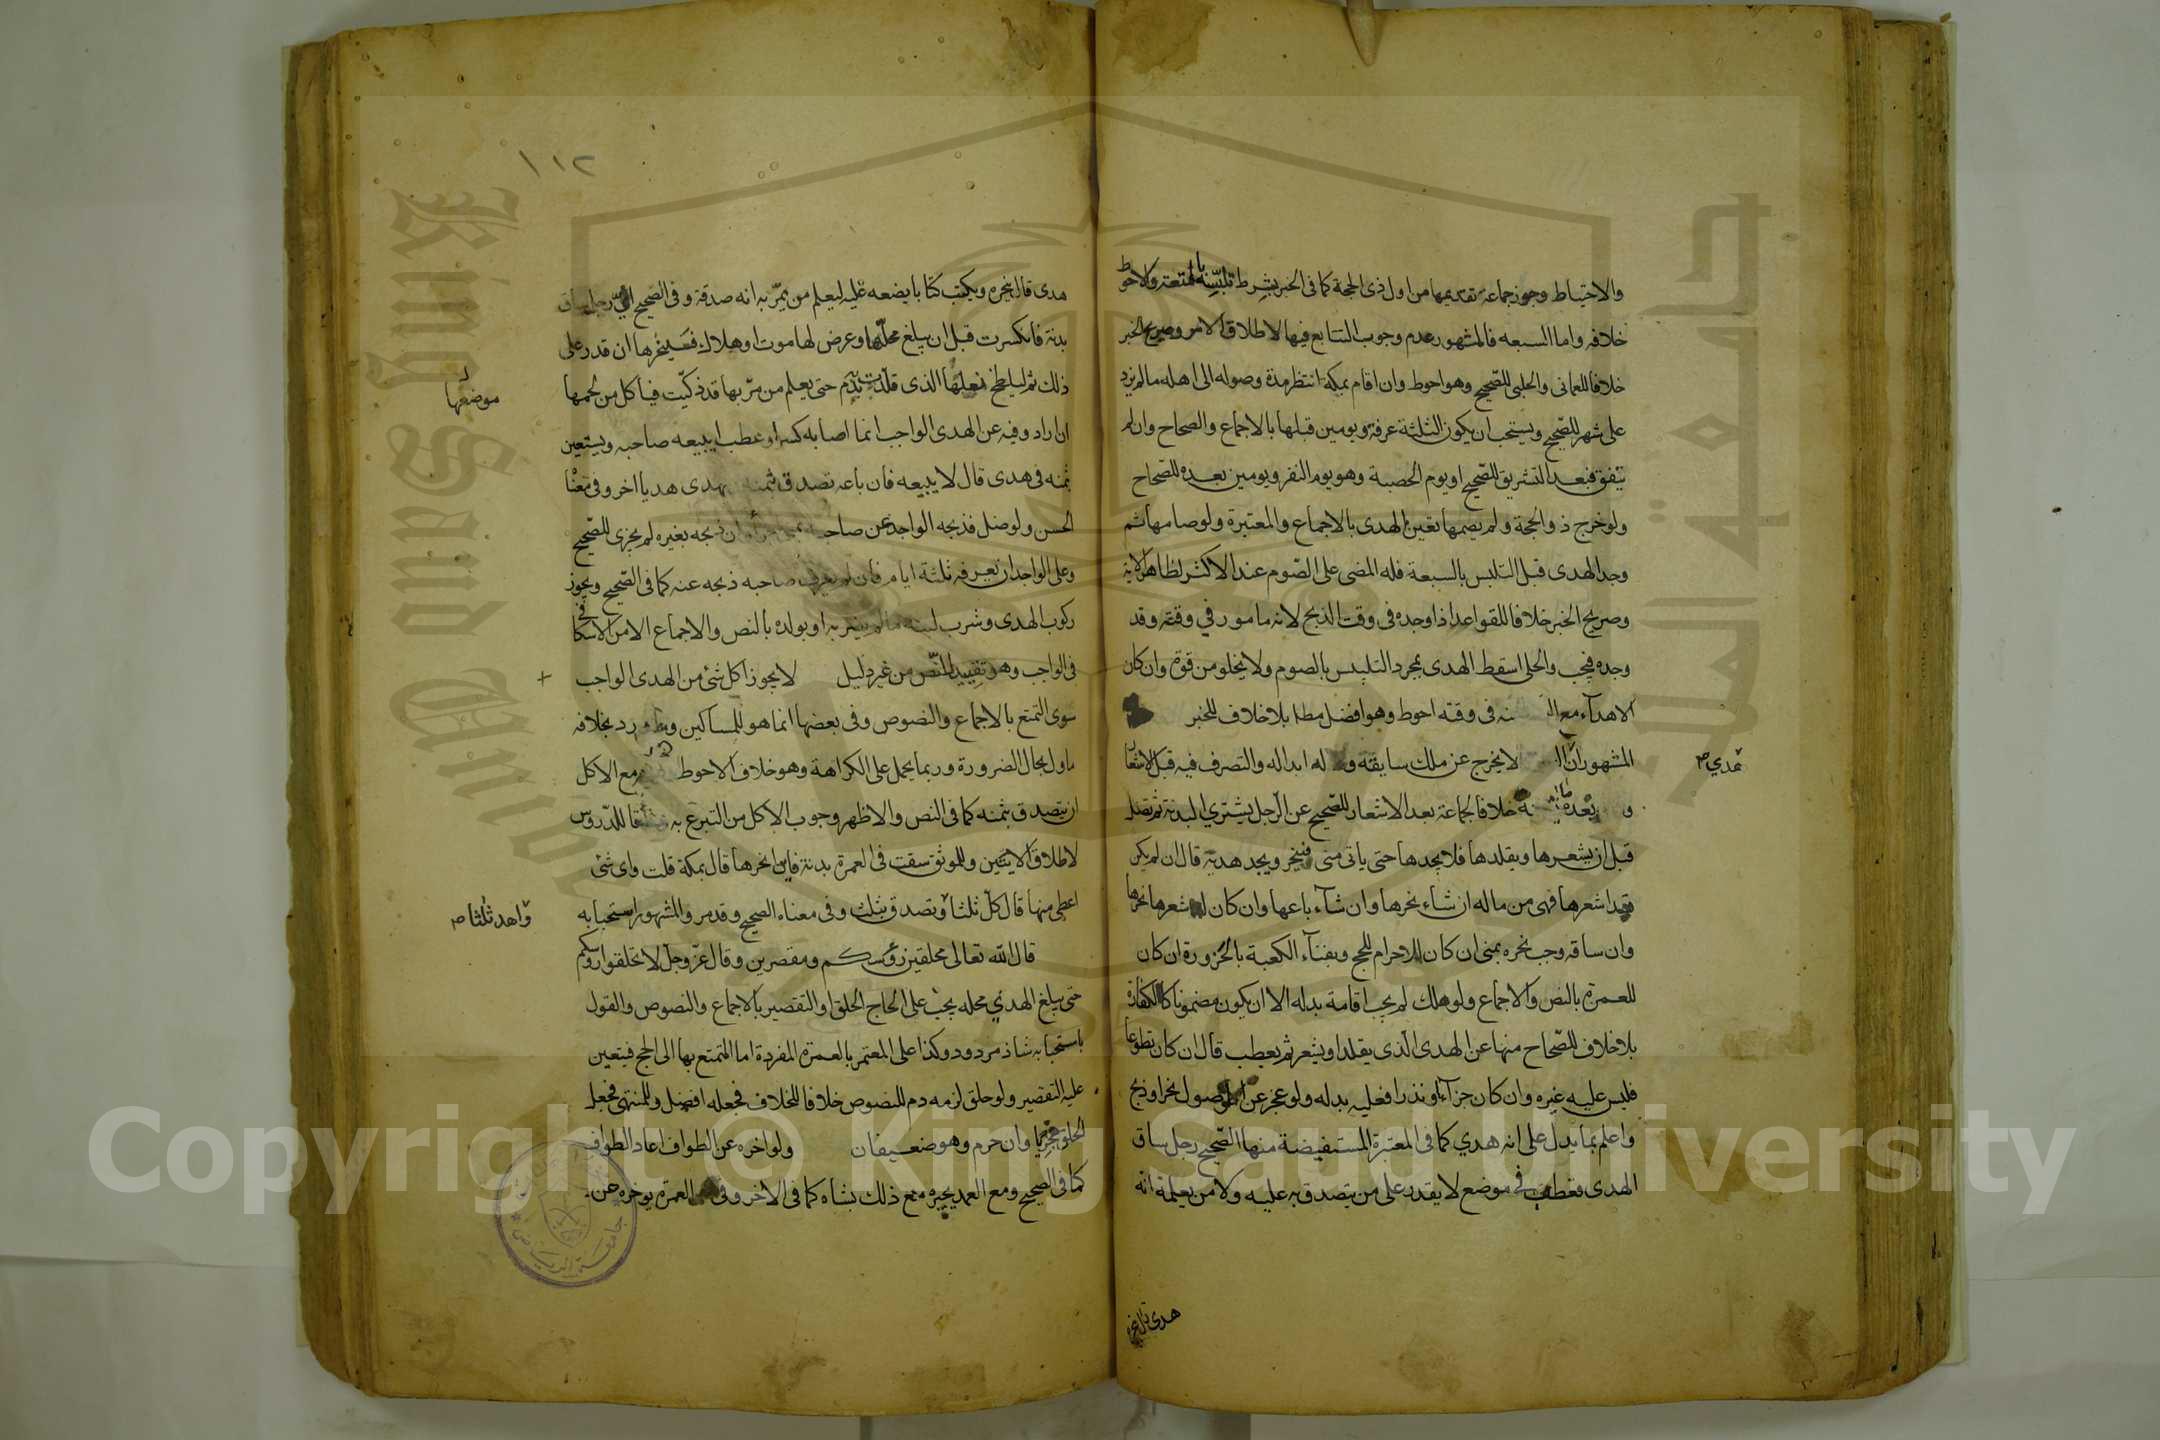 والاحتياط وجوز جماعة تقديمها من اول ذى الحجة كما فى الخبر بشرط تلبسه بالمتعة والاحوط
خلافه واما السبعه فالمشهور عدم وجوب التتابع فيها لاطلاق الامر وصريح الخبر
خلافا للعمانى والحلبى للصحيح وهو احوط وان اقام بمكة انتظر مدة وصوله الى اهله مالم يزد
على شهر للصحيح ويستحب ان يكون الثلثة عرفة ويومين قبلها بالاجماع والصحاح وان لم
يتفق فبعد التشريق للصحيح او يوم الحصبة وهو يوم النفر ويومين بعده للصحاح
ولو خرج ذو الحجة ولم يصمها تعين الهدى بالاجماع والمعتبرة ولو صامها ثم
وجد الهدى قبل التلبس بالسبعة فله المضى على الصوم عند الاكثر لظاهر الاية
وصريح الخبر خلافا للقواعد اذا وجده فى وقت الذبح لانه مامور في وقته وقد
وجده فيجب والحلى اسقط الهدى بمجرد التلبس بالصوم ولا يخلو من قوة وان كان
الاهدآء مع فى وقته احوط وهو افضل مطلقا بلا خلاف للخبر
المشهور ان لا يخرج عن ملك سايقه وله ابداله والتصرف فيه قبل الاشعار
هدي
خلافا لجماعة بعد الاشعار للصحيح عن الرجل يشتري البدنة ثم تضل
قبل ان يشعرها ويقلدها فلا يجدها حتى ياتى منى فينحر ويجد هديه قال ان لم يكن
قد اشعرها فهى من ماله ان شاء نحرها وان شآء باعها وان كان اشعرها نحرها
وان ساقه وجب نحره بمنى ان كان للاحرام للحج وبفنآء الكعبة بالحزورة ان كان
للعمرة بالنص والاجماع ولو هلك لم يجب اقامة بدله الا ان يكون مضمونا كالكفارة
بلا خلاف للصحاح منها عن الهدى الذى يقلد او يشعر ثم يعطب قال ان كان تطوعا
فليس عليه غيره وان كان جزآء او نذرا فعليه بدله ولو عجز عن الوصول نحر او ذبح
واعلم بما يدل على انه هدي كما فى المعتبرة المستفيضة منها الصحيح رجل ساق
الهدى فعطب في موضع لا يقدر على من يتصدق به عليه ولا من يعلمه انه
هدى قال ينحره
١١٢
هدى قال ينحره ويكتب كتابا يضعه عليه ليعلم من يمر به انه صدقة وفى الصحيح اى رجل ساق
بدنة فانكسرت قبل ان يبلغ محلها او عرض لها موت او هلاك فينحرها ان قدر على
ذلك ثم ليلطخ نعلها الذى قلدت به بدم حتى يعلم من مر بها قد ذكيت فياكل من لحمها
موضعها
ان اراد وفيه عن الهدى الواجب اذا اصابه كسر او عطب ايبيعه صاحبه ويستعين
بثمنه فى هدى قال لا يبيعه فان باعه تصدق بثمنه ويهدى هديا اخر وفى معناه
الحسن ولو ضل فذبحه الواجد عن صاحبه ذبحه بغيره لم يجزى للصحيح
وعلى الواجد ان يعرفه ثلثة ايام فان لم يعرف صاحبه ذبحه عنه كما فى الصحيح ويجوز
ركوب الهدى وشرب لبنه مالم يضر به او بولده بالنص والاجماع الا من الاسكافى
فى الواجب وهو تقييد للنص من غير دليل لا يجوز اكل شئ من الهدى الواجب
سوى التمتع بالاجماع والنصوص وفى بعضها انما هو للمساكين وما ورد بخلافه
ماول بحال الضرورة وربما يحمل على الكراهة وهو خلاف الاحوط مع الاكل
ان يتصدق بثمنه كما فى النص والاظهر وجوب الاكل من التبرع به للدروس
لاطلاق الايتين وللموثق سقت فى العمرة بدنة فاين انحرها قال بمكة قلت واى شئ
اعطى منها قال كل ثلثا وتصدق بثلث وفى معناه الصحيح وقد مر والمشهور استحبابه
واهد ثلثا
قال الله تعالى محلقين رؤسكم ومقصرين وقال عز وجل لا تحلقوا رؤسكم
حتى يبلغ الهدي محله يجب على الحاج الحلق او التقصير بالاجماع والنصوص والقول
باستحبابه شاذ مردود وكذا على المعتمر بالعمرة المفردة اما المتمتع بها الى الحج فيتعين
عليه التقصير ولو حلق لزمه دم للنصوص خلافا للخلاف فجعله افضل وللمنتهى فجعل
الحلق مجزيا وان حرم وهو ضعيفان ولو اخره عن الطواف اعاد الطواف
كما فى الصحيح ومع العمد يجبره مع ذلك بشاه كما فى الاخر وفى العمرة يوخره عن